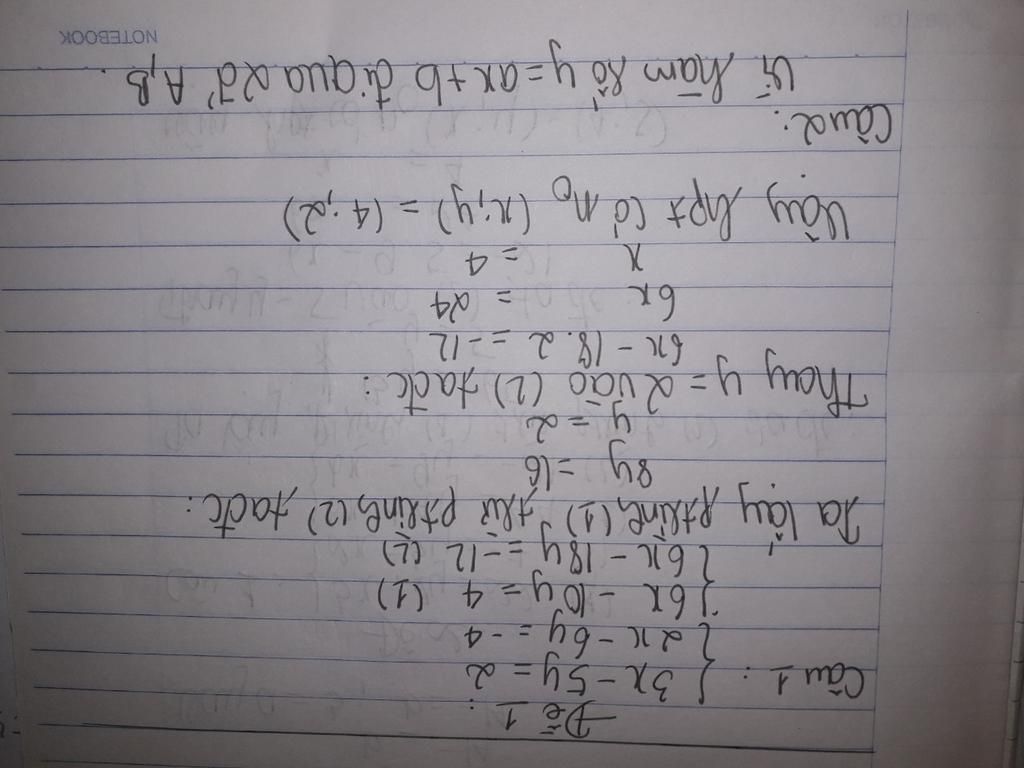 Đề 1:
Câu 1: { 3x - 5y = 2
2x - 6y = -4
{ 6x - 10y = 4 (1)
6x - 18y = -12 (2)
Ta lấy ptrình (1) trừ ptrình (2) tađc:
8y = 16
y = 2
Thay y = 2 vào (2) tađc:
6x - 18.2 = -12
6x = 24
x = 4
Vậy hpt có n₀ (x;y) = (4;2)
Câu 2:
Vì hàm số y = ax+b đi qua 2đ' A,B.
NOTEBOOK